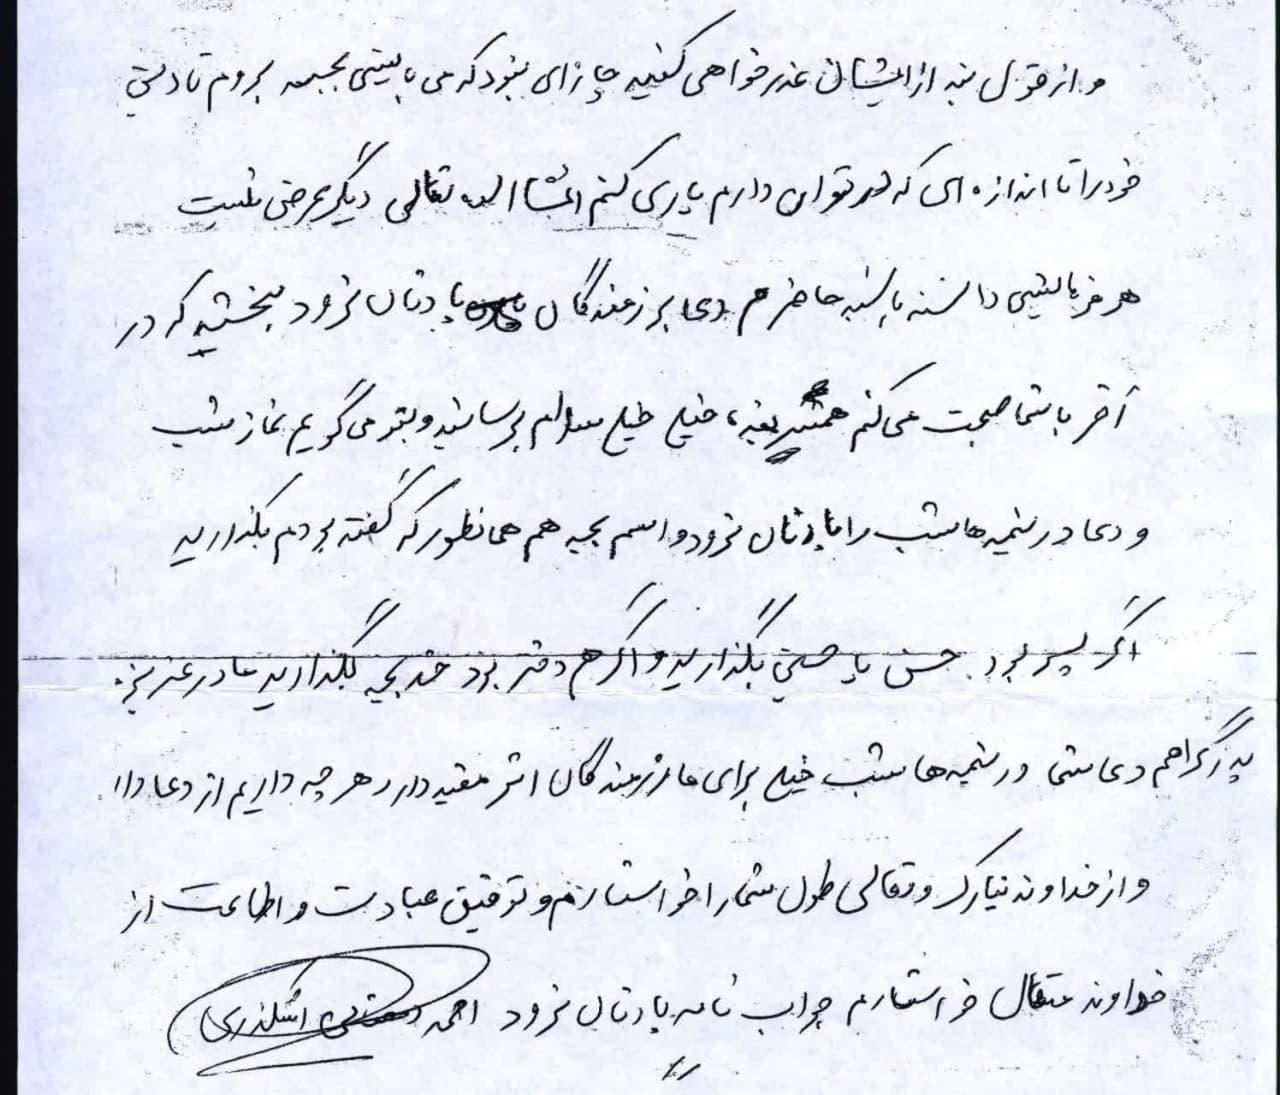 و از قول بنده از ایشان عذر خواهی کنید چاره‌ای نبود که می بایستی بجبهه بروم تا دین
خود را تا اندازه‌ای که در توان دارم یاری کنم انشا الله تعالی دیگر عرضی نیست
هر فرمایشی داشته باشید حاضرم دعا بر رزمندگان یادتان نرود ببخشید که در
آخر با شما صحبت می‌کنم خیلی خیلی سلام برسانید و بتو می گویم نماز شب
و دعا در نیمه‌ها شب را یادتان نرود و اسم بچه هم همانطور که گفته بودم بگذارید
اگر پسر بود حسن یا حسین بگذارید و اگر هم دختر بود خدیجه بگذارید مادر عزیز
پدر گرامم دعا شما در نیمه‌ها شب خیلی برای ما رزمندگان اثر مفید دارد هر چه داریم از دعا
و از خداوند تبارک و تعالی طول شما را خواستارم و توفیق عبادت و اطاعت از
خداوند متعال خواستارم جواب نامه یادتان نرود احمد اشکذری